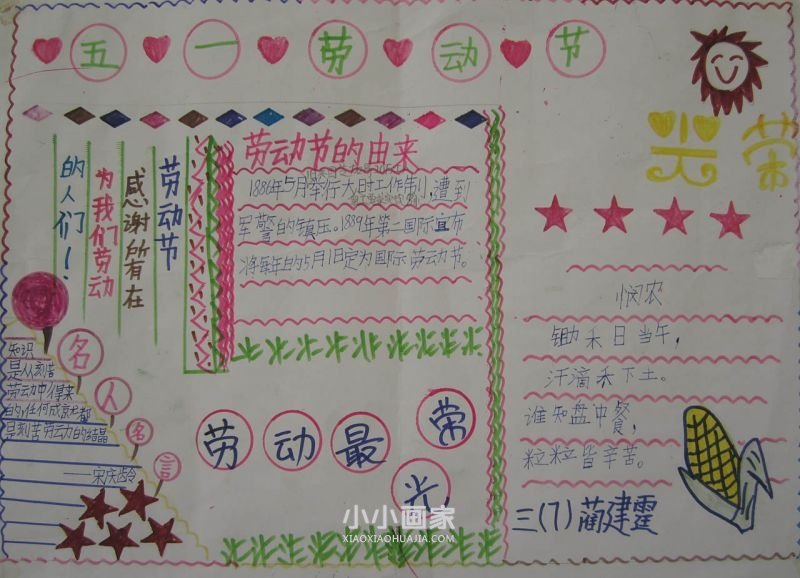 五一劳动节
光荣
劳动节的由来
1886年5月举行大时工作制,遭到
军警的镇压。1889年第二国际宣布
将每年的5月1日定为国际劳动节。
劳动节
感谢所有在
为我们劳动
的人们!
名人名言
知识
是从刻苦
劳动中得来
的,任何成就都
是刻苦劳动力的结晶
——宋庆龄
劳动最光荣
悯农
锄禾日当午,
汗滴禾下土。
谁知盘中餐,
粒粒皆辛苦。
三(7)蔺建霆
小小画家
XIAOXIAOHUAJIA.COM